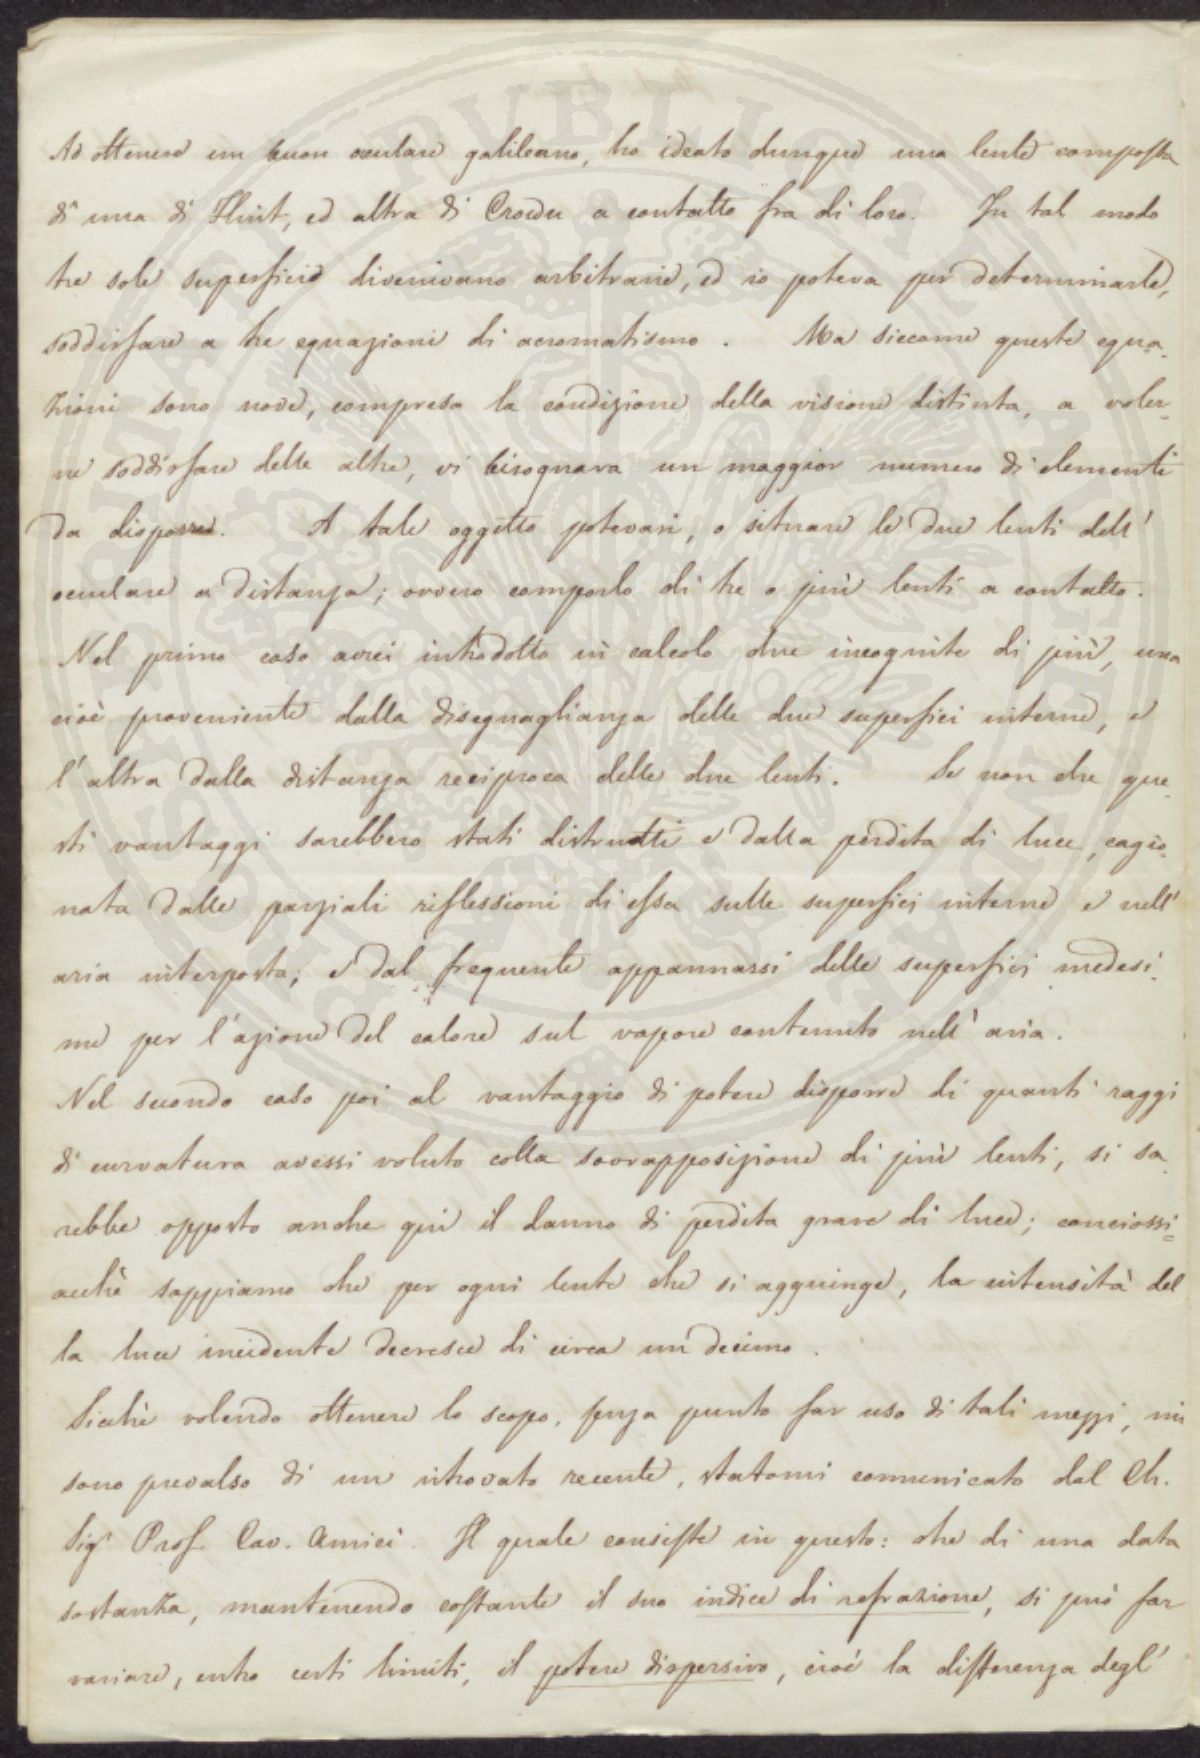 Ad ottenere un buon oculare galileano, ho ideato dunque una lente composta
di una di Flint, ed altra di Crown a contatto fra di loro. In tal modo
tre sole superficie divenivano arbitrarie, ed io poteva per determinarle,
soddisfare a tre equazioni di acromatismo. Ma siccome queste equa-
zioni sono nove, compresa la condizione della visione distinta, a voler-
ne soddisfare delle altre, vi bisognava un maggior numero di elementi
da disporre. A tale oggetto potevasi, o situare le due lenti dell'
oculare a distanza; ovvero comporlo di tre o più lenti a contatto.
Nel primo caso avrei introdotto in calcolo due incognite di più, una
cioè proveniente dalla diseguaglianza delle due superfici interne, e
l'altra dalla distanza reciproca delle due lenti. Se non che que-
sti vantaggi sarebbero stati distrutti e dalla perdita di luce, cagio-
nata dalle parziali riflessioni di essa sulle superfici interne e nell'
aria interposta; e dal frequente appannarsi delle superfici medesi-
me per l'azione del calore sul vapore contenuto nell'aria.
Nel secondo caso poi al vantaggio di potere disporre di quanti raggi
di curvatura avessi voluto colla sovrapposizione di più lenti, si sa-
rebbe opposto anche quì il danno di perdita grave di luce; conciossi=
acchè sappiamo che per ogni lente che si aggiunge, la intensità del
la luce incidente decresce di circa un decimo.
Sicchè volendo ottenere lo scopo, senza punto far uso di tali mezzi, mi
sono prevalso di un ritrovato recente, statomi comunicato dal Ch.
Sig.r Prof. Cav. Amici. Il quale consiste in questo: che di una data
sostanza, mantenendo costante il suo indice di refrazione, si può far
variare, entro certi limiti, il potere dispersivo, cioè la differenza degl'